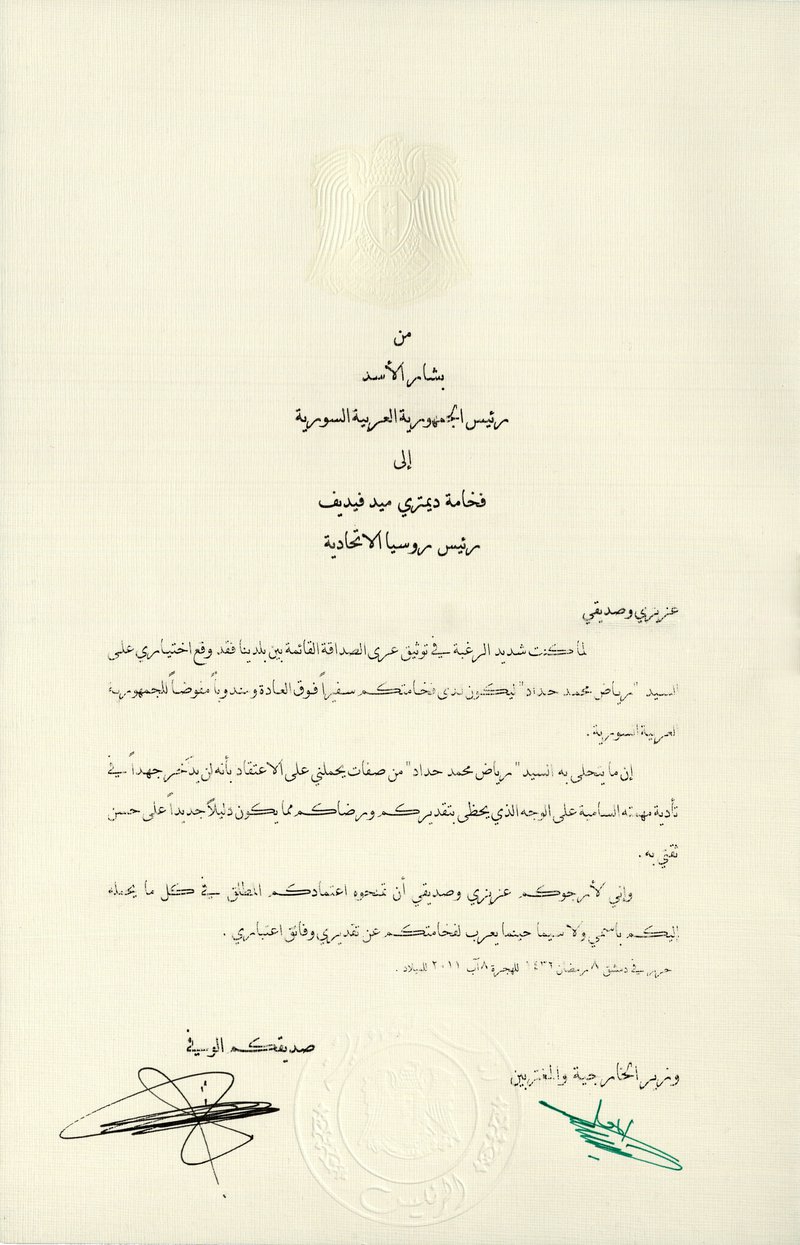 من
بشار الأسد
رئيس الجمهورية العربية السورية
إلى
فخامة ديمتري ميد فيديف
رئيس روسيا الاتحادية
عزيزي وصديقي
لما كنت شديد الرغبة في توثيق عرى الصداقة القائمة بين بلدينا فقد وقع اختياري على
السيد "رياض محمد حداد" ليكون لدى فخامتكم سفيراً فوق العادة ومندوباً مفوضاً للجمهورية
العربية السورية .
إن ما يتحلى به السيد "رياض محمد حداد" من صفات يحملني على الاعتقاد بأنه لن يدّخر جهداً في
تأدية مهمته السامية على الوجه الذي يحظى بتقديركم ورضاكم مما يكون دليلاً جديداً على حسن
ثقتي به .
وإني لأرجوكم عزيزي وصديقي أن تمنحوه اعتمادكم المطلق في كل ما يحمله
إليكم باسمي ولا سيما حينما يعرب لفخامتكم عن تقديري وفائق اعتباري .
حرر في دمشق ٨ رمضان ١٤٣٢ للهجرة ٨ آب ٢٠١١ للميلاد .
صديقكم الوفي
وزير الخارجية والمغتربين
الرئيس